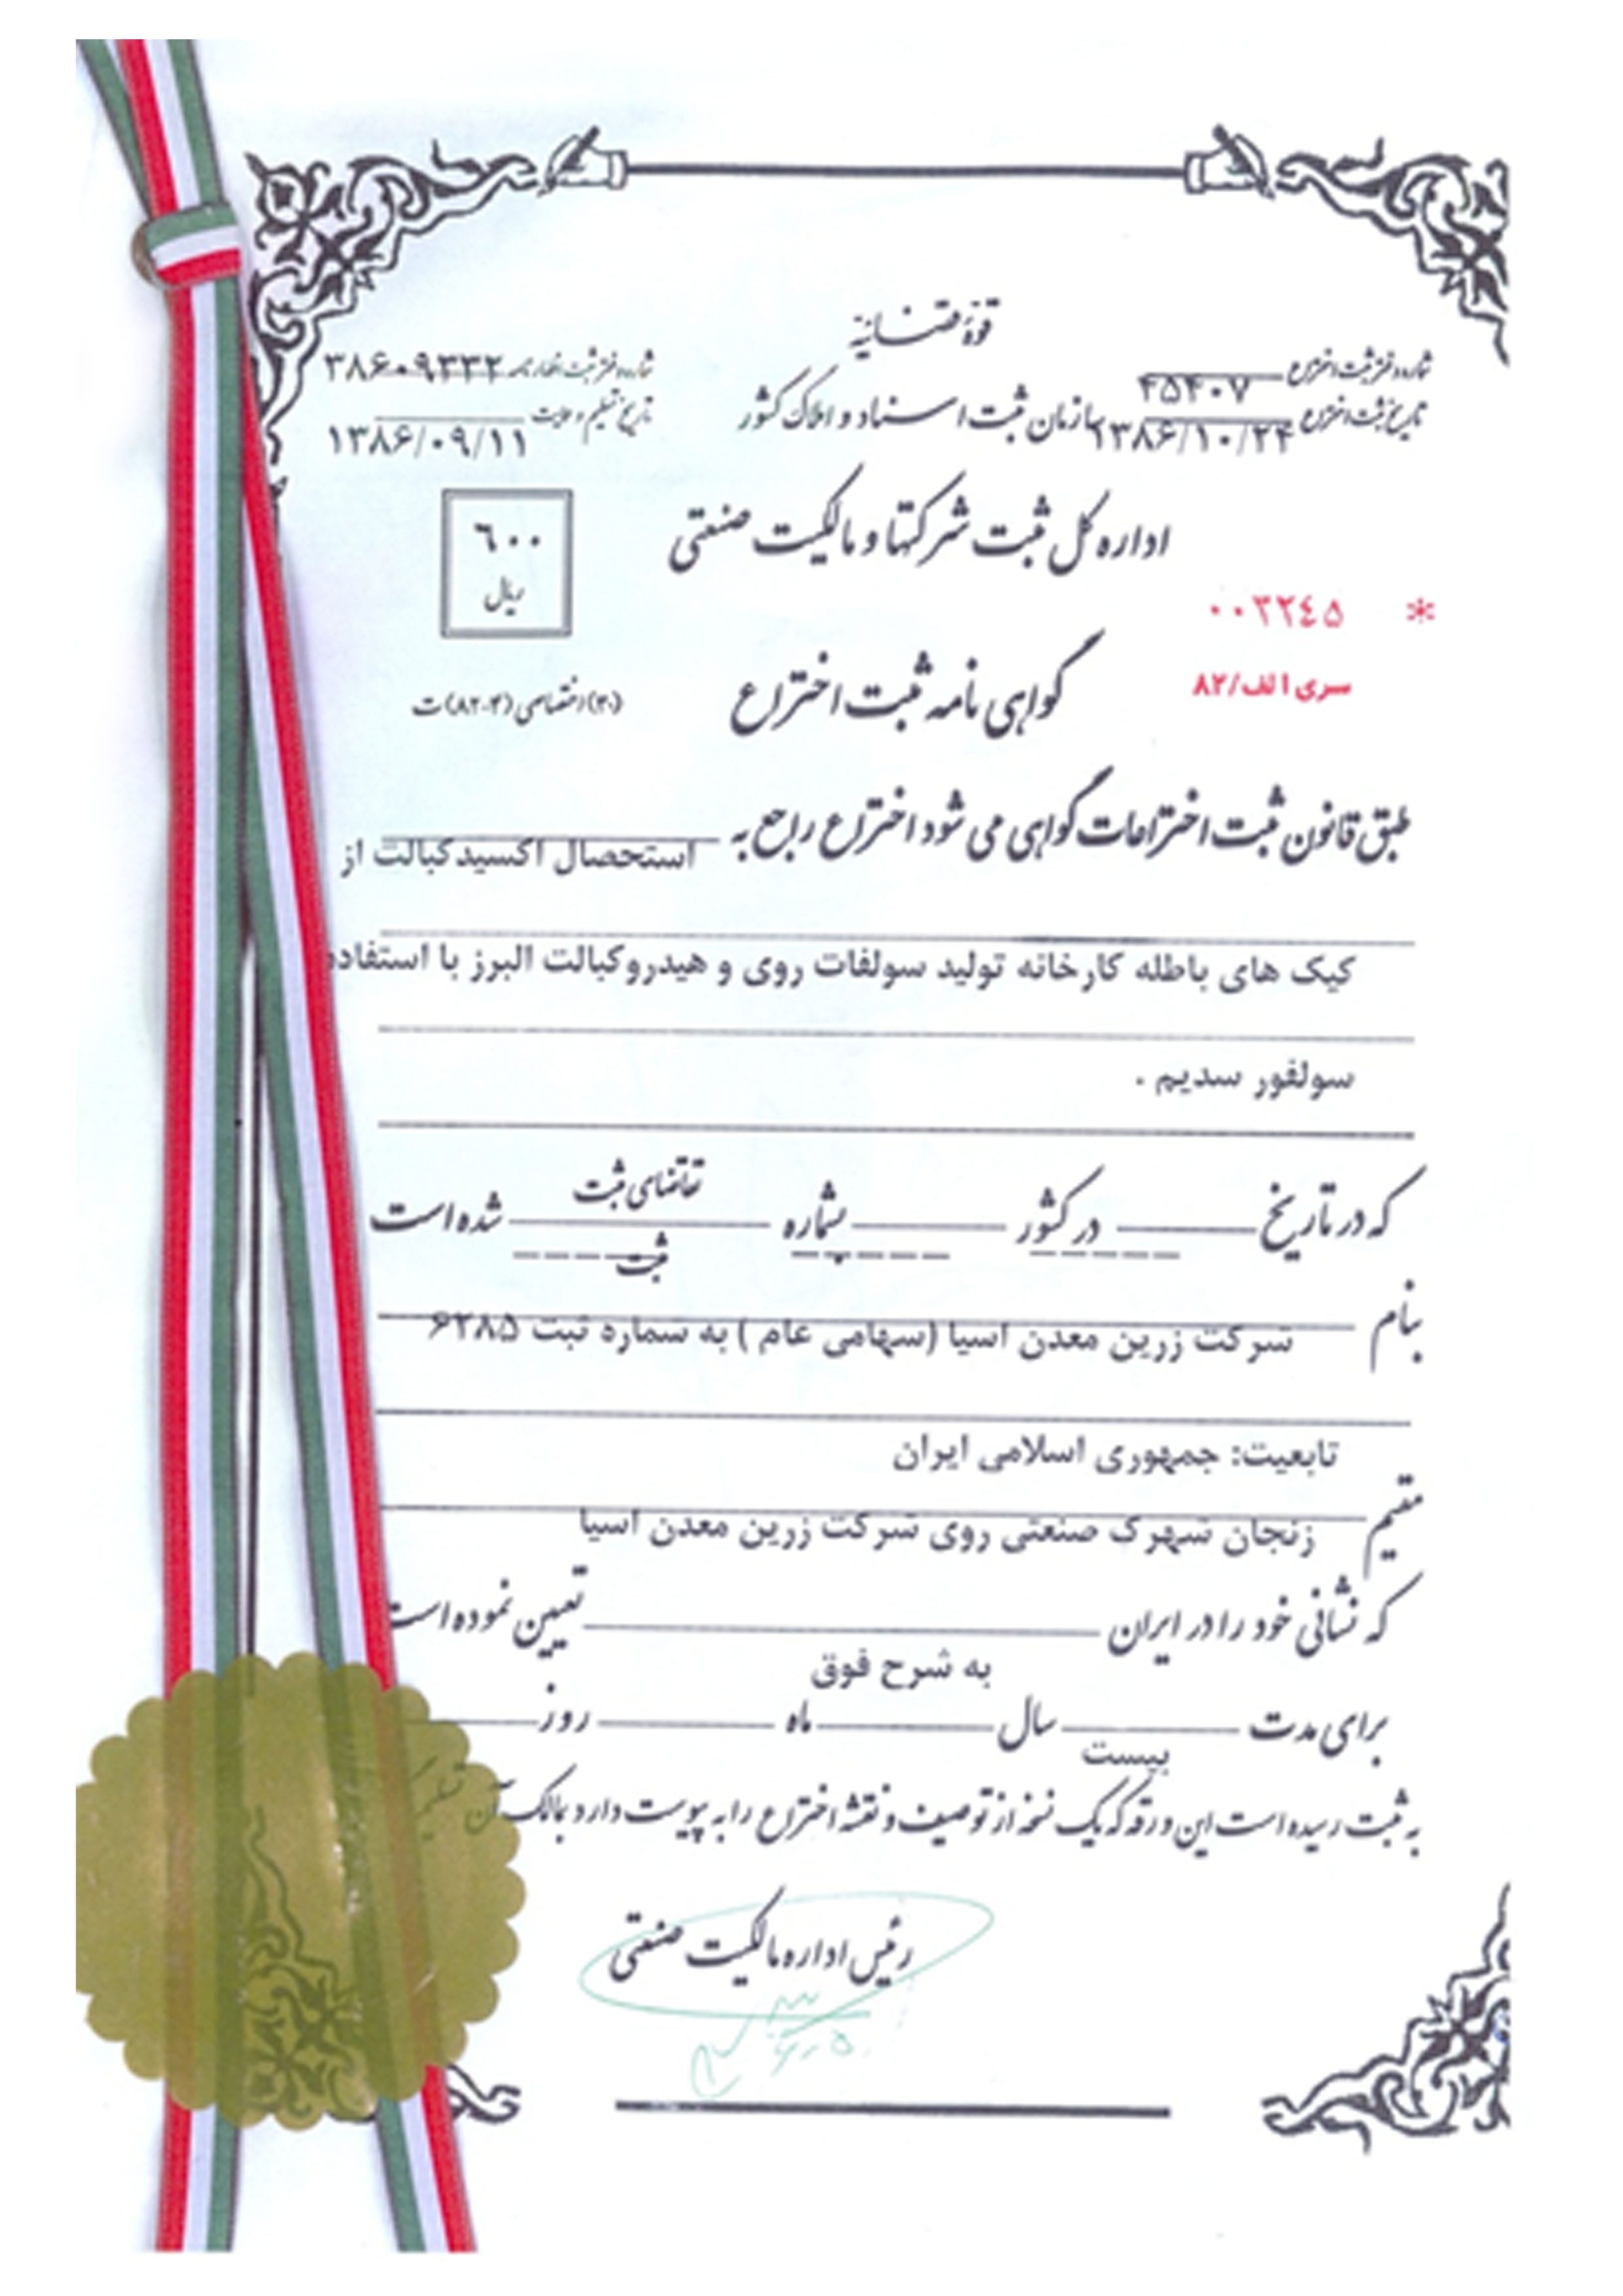 قوهٔ قضائیه
شماره دفتر ثبت اختراع ۴۵۴۰۷
شماره دفتر ثبت اظهارنامه ۳۸۶۰۹۳۳۲
سازمان ثبت اسناد و املاک کشور
تاریخ ثبت اختراع ۱۳۸۶/۱۰/۲۴
تاریخ تسلیم ۱۳۸۶/۰۹/۱۱
اداره کل ثبت شرکتها و مالکیت صنعتی
۶۰۰
ریال
* ۰۰۲۲۴۵
سری الف/۸۲
گواهی نامه ثبت اختراع
(۳۰) اختصاصی (۸۲-۴) ت
طبق قانون ثبت اختراعات گواهی می شود اختراع راجع به استحصال اکسید کبالت از
کیک های باطله کارخانه تولید سولفات روی و هیدروکبالت البرز با استفاده
سولفور سدیم .
که در تاریخ در کشور بشماره تقاضای ثبت شده است
ثبت
بنام شرکت زرین معدن آسیا (سهامی عام ) به شماره ثبت ۶۲۸۵
تابعیت: جمهوری اسلامی ایران
مقیم زنجان شهرک صنعتی روی شرکت زرین معدن آسیا
که نشانی خود را در ایران تعیین نموده است
به شرح فوق
برای مدت بیست سال ماه روز
به ثبت رسیده است این ورقه که یک نسخه از توصیف و نقشه اختراع را به پیوست دارد بمالک آن تسلیم
رئیس اداره مالکیت صنعتی